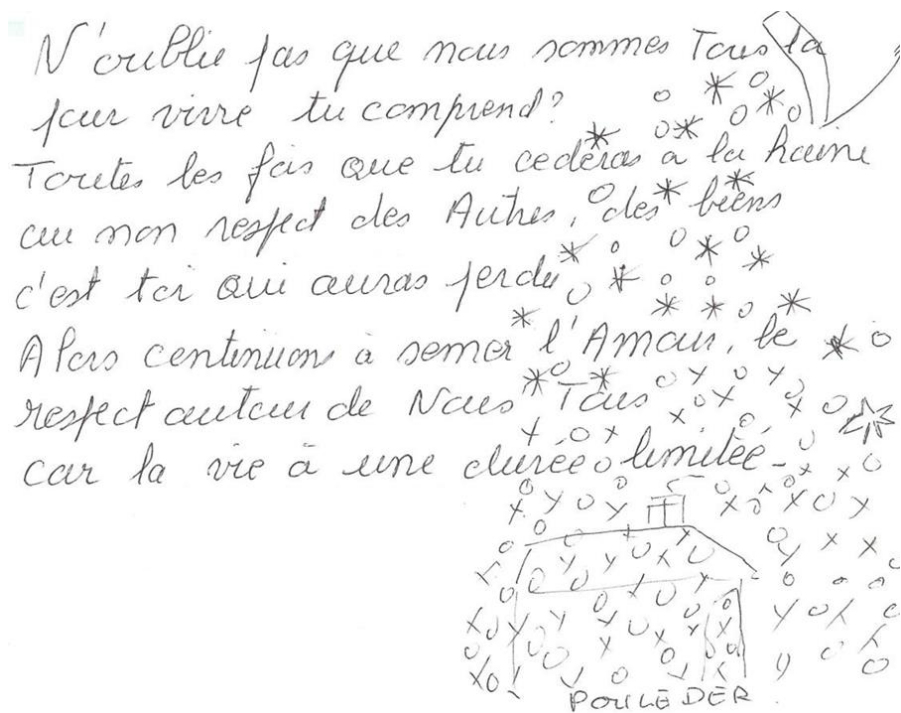 N'oublie pas que nous sommes Tous la
pour vivre tu comprend?
Toutes les fois que tu cederas a la haine
au non respect des Autres, des biens
c'est toi qui auras perdu
Alors continuons à semer l'Amour, le
respect autour de Nous Tous
car la vie à une durée limitée -
POULEDER